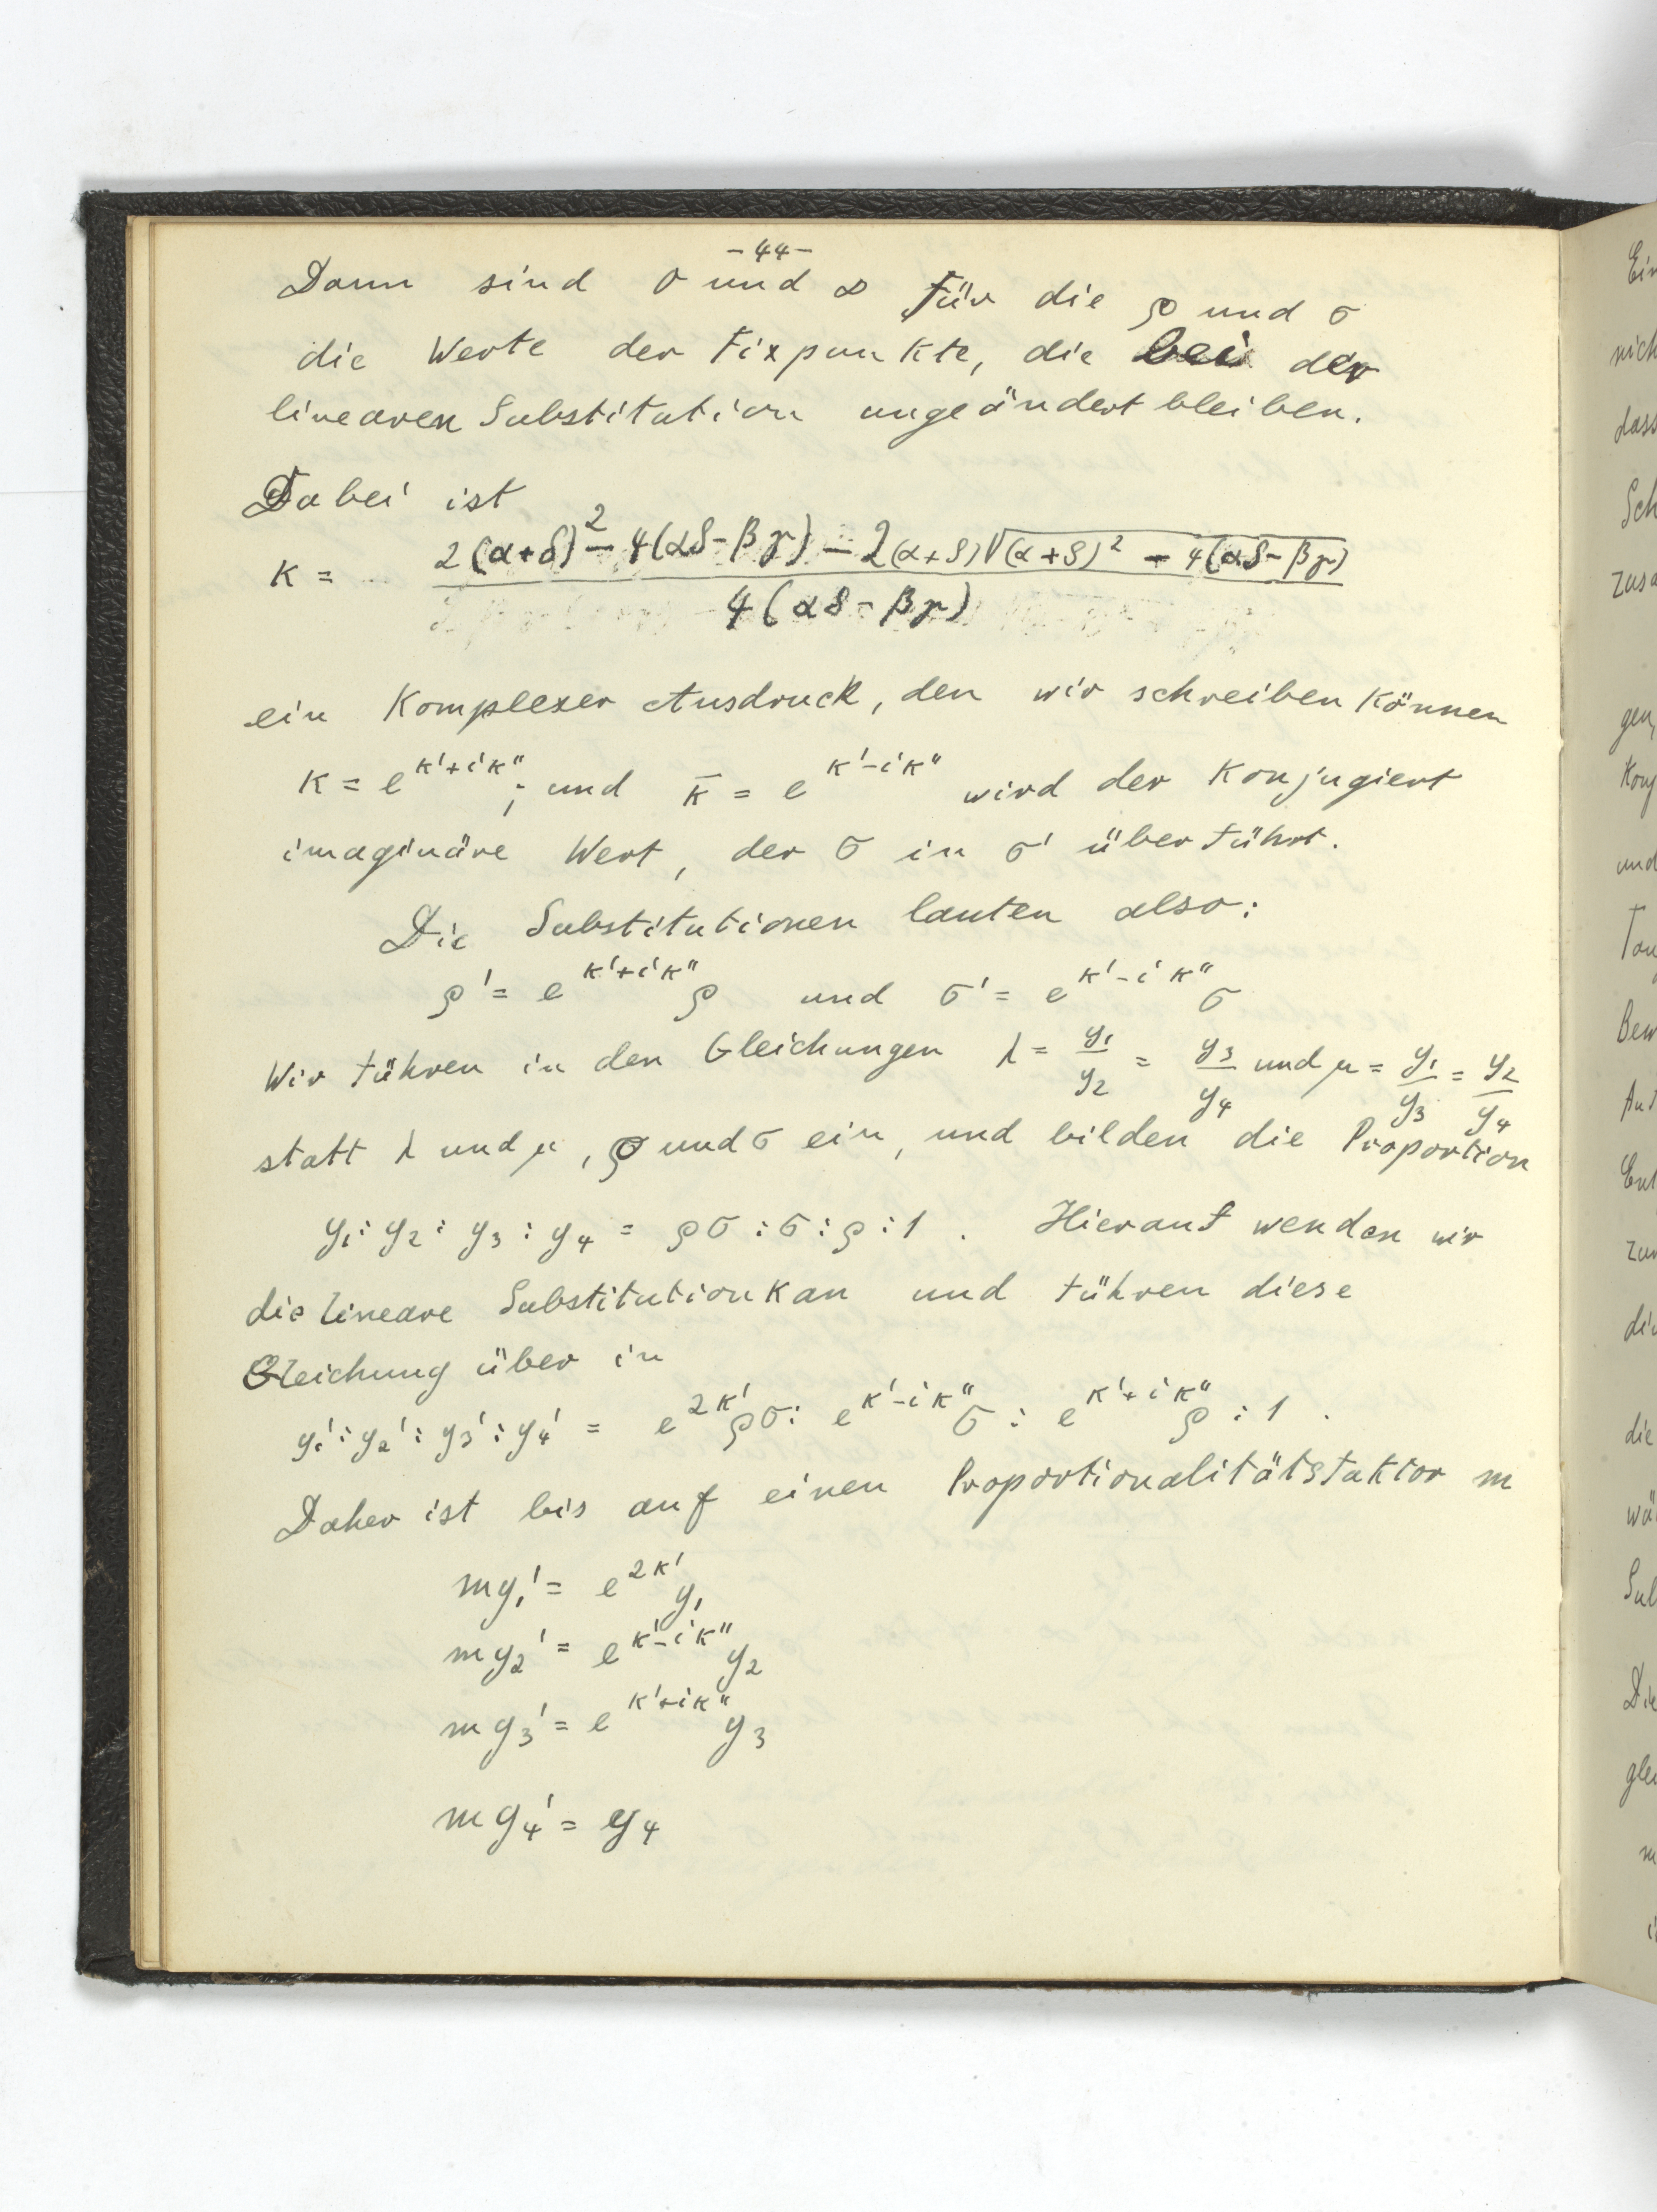 -44-
Dann sind 0 und ∞ für die ρ und σ
die Werte der Fixpunkte, die bei der
linearen Substitution ungeändert bleiben.
Dabei ist
K = \frac{2(α+δ)^2 - 4(αδ-βγ) - 2(α+δ)\sqrt{(α+δ)^2 - 4(αδ-βγ)}}{4(αδ-βγ)}
ein Komplexer Ausdruck, den wir schreiben können
K = e^{K'+iK''}; und \bar{K} = e^{K'-iK''} wird der Konjugiert
imaginäre Wert, der σ in σ' überführt.
Die Substitutionen lauten also:
ρ' = e^{K'+iK''}ρ und σ' = e^{K'-iK''}σ
Wir führen in den Gleichungen λ = \frac{y_1}{y_2} = \frac{y_3}{y_4} und μ = \frac{y_1}{y_3} = \frac{y_2}{y_4}
statt λ und μ, ρ und σ ein, und bilden die Proportion
y_1 : y_2 : y_3 : y_4 = ρσ : σ : ρ : 1 . Hierauf wenden wir
die lineare Substitution K an und führen diese
Gleichung über in
y_1' : y_2' : y_3' : y_4' = e^{2K'}ρσ : e^{K'-iK''}σ : e^{K'+iK''}ρ : 1 .
Daher ist bis auf einen Proportionalitätsfaktor m
my_1' = e^{2K'}y_1
my_2' = e^{K'-iK''}y_2
my_3' = e^{K'+iK''}y_3
my_4' = y_4